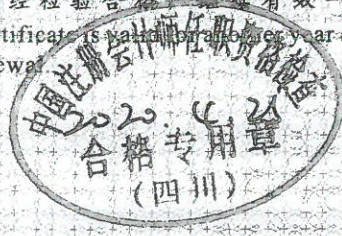 经检验合格，继续有效一
tificate is valid for another year a
ewal
中国注册会计师任职资格检查
2020.4.21
合格专用章
(四川)